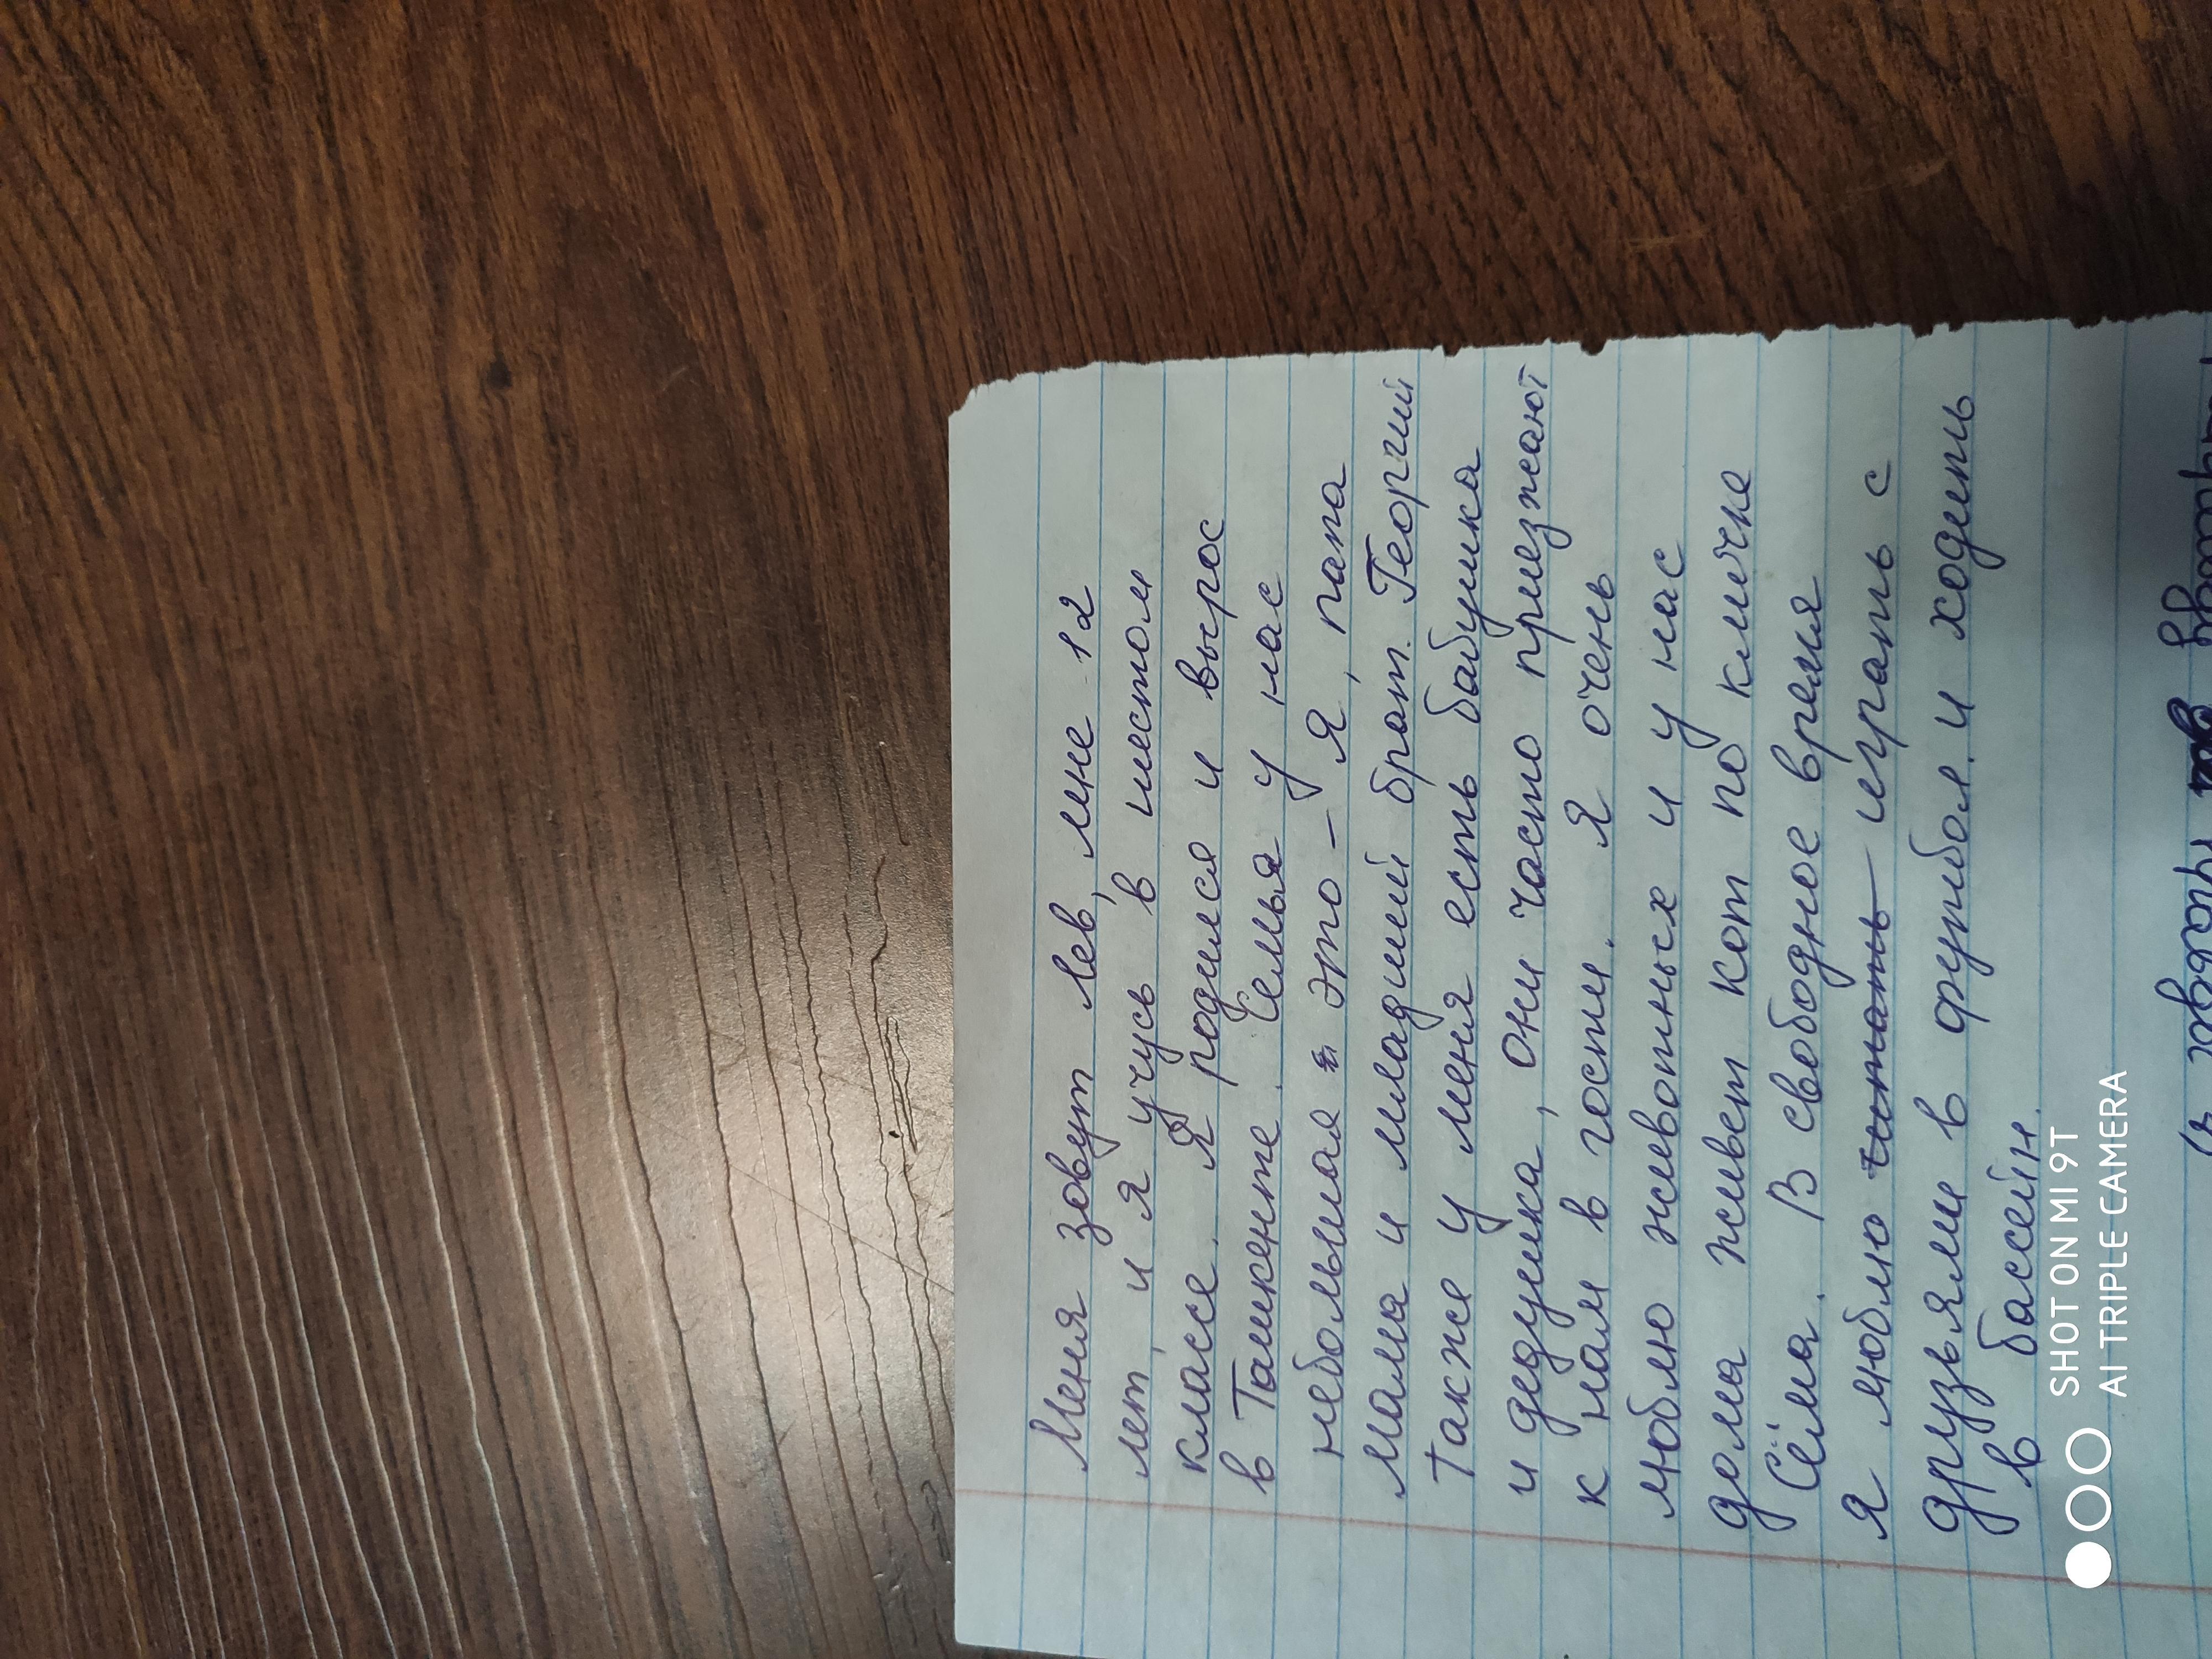 Меня зовут Лев, мне 12
лет, и я учусь в шестом
классе. Я родился и вырос
в Ташкенте. Семья у нас
небольшая я это - я, папа
мама и младший брат. Георгий
Также у меня есть бабушка
и дедушка, они часто приезжают
к нам в гости. Я очень
люблю животных и у нас
дома живет кот по кличке
Сёма. В свободное время
я люблю читать играть с
друзьями в футбол. и ходить
в бассейн.
SHOT ON MI 9T
AI TRIPLE CAMERA